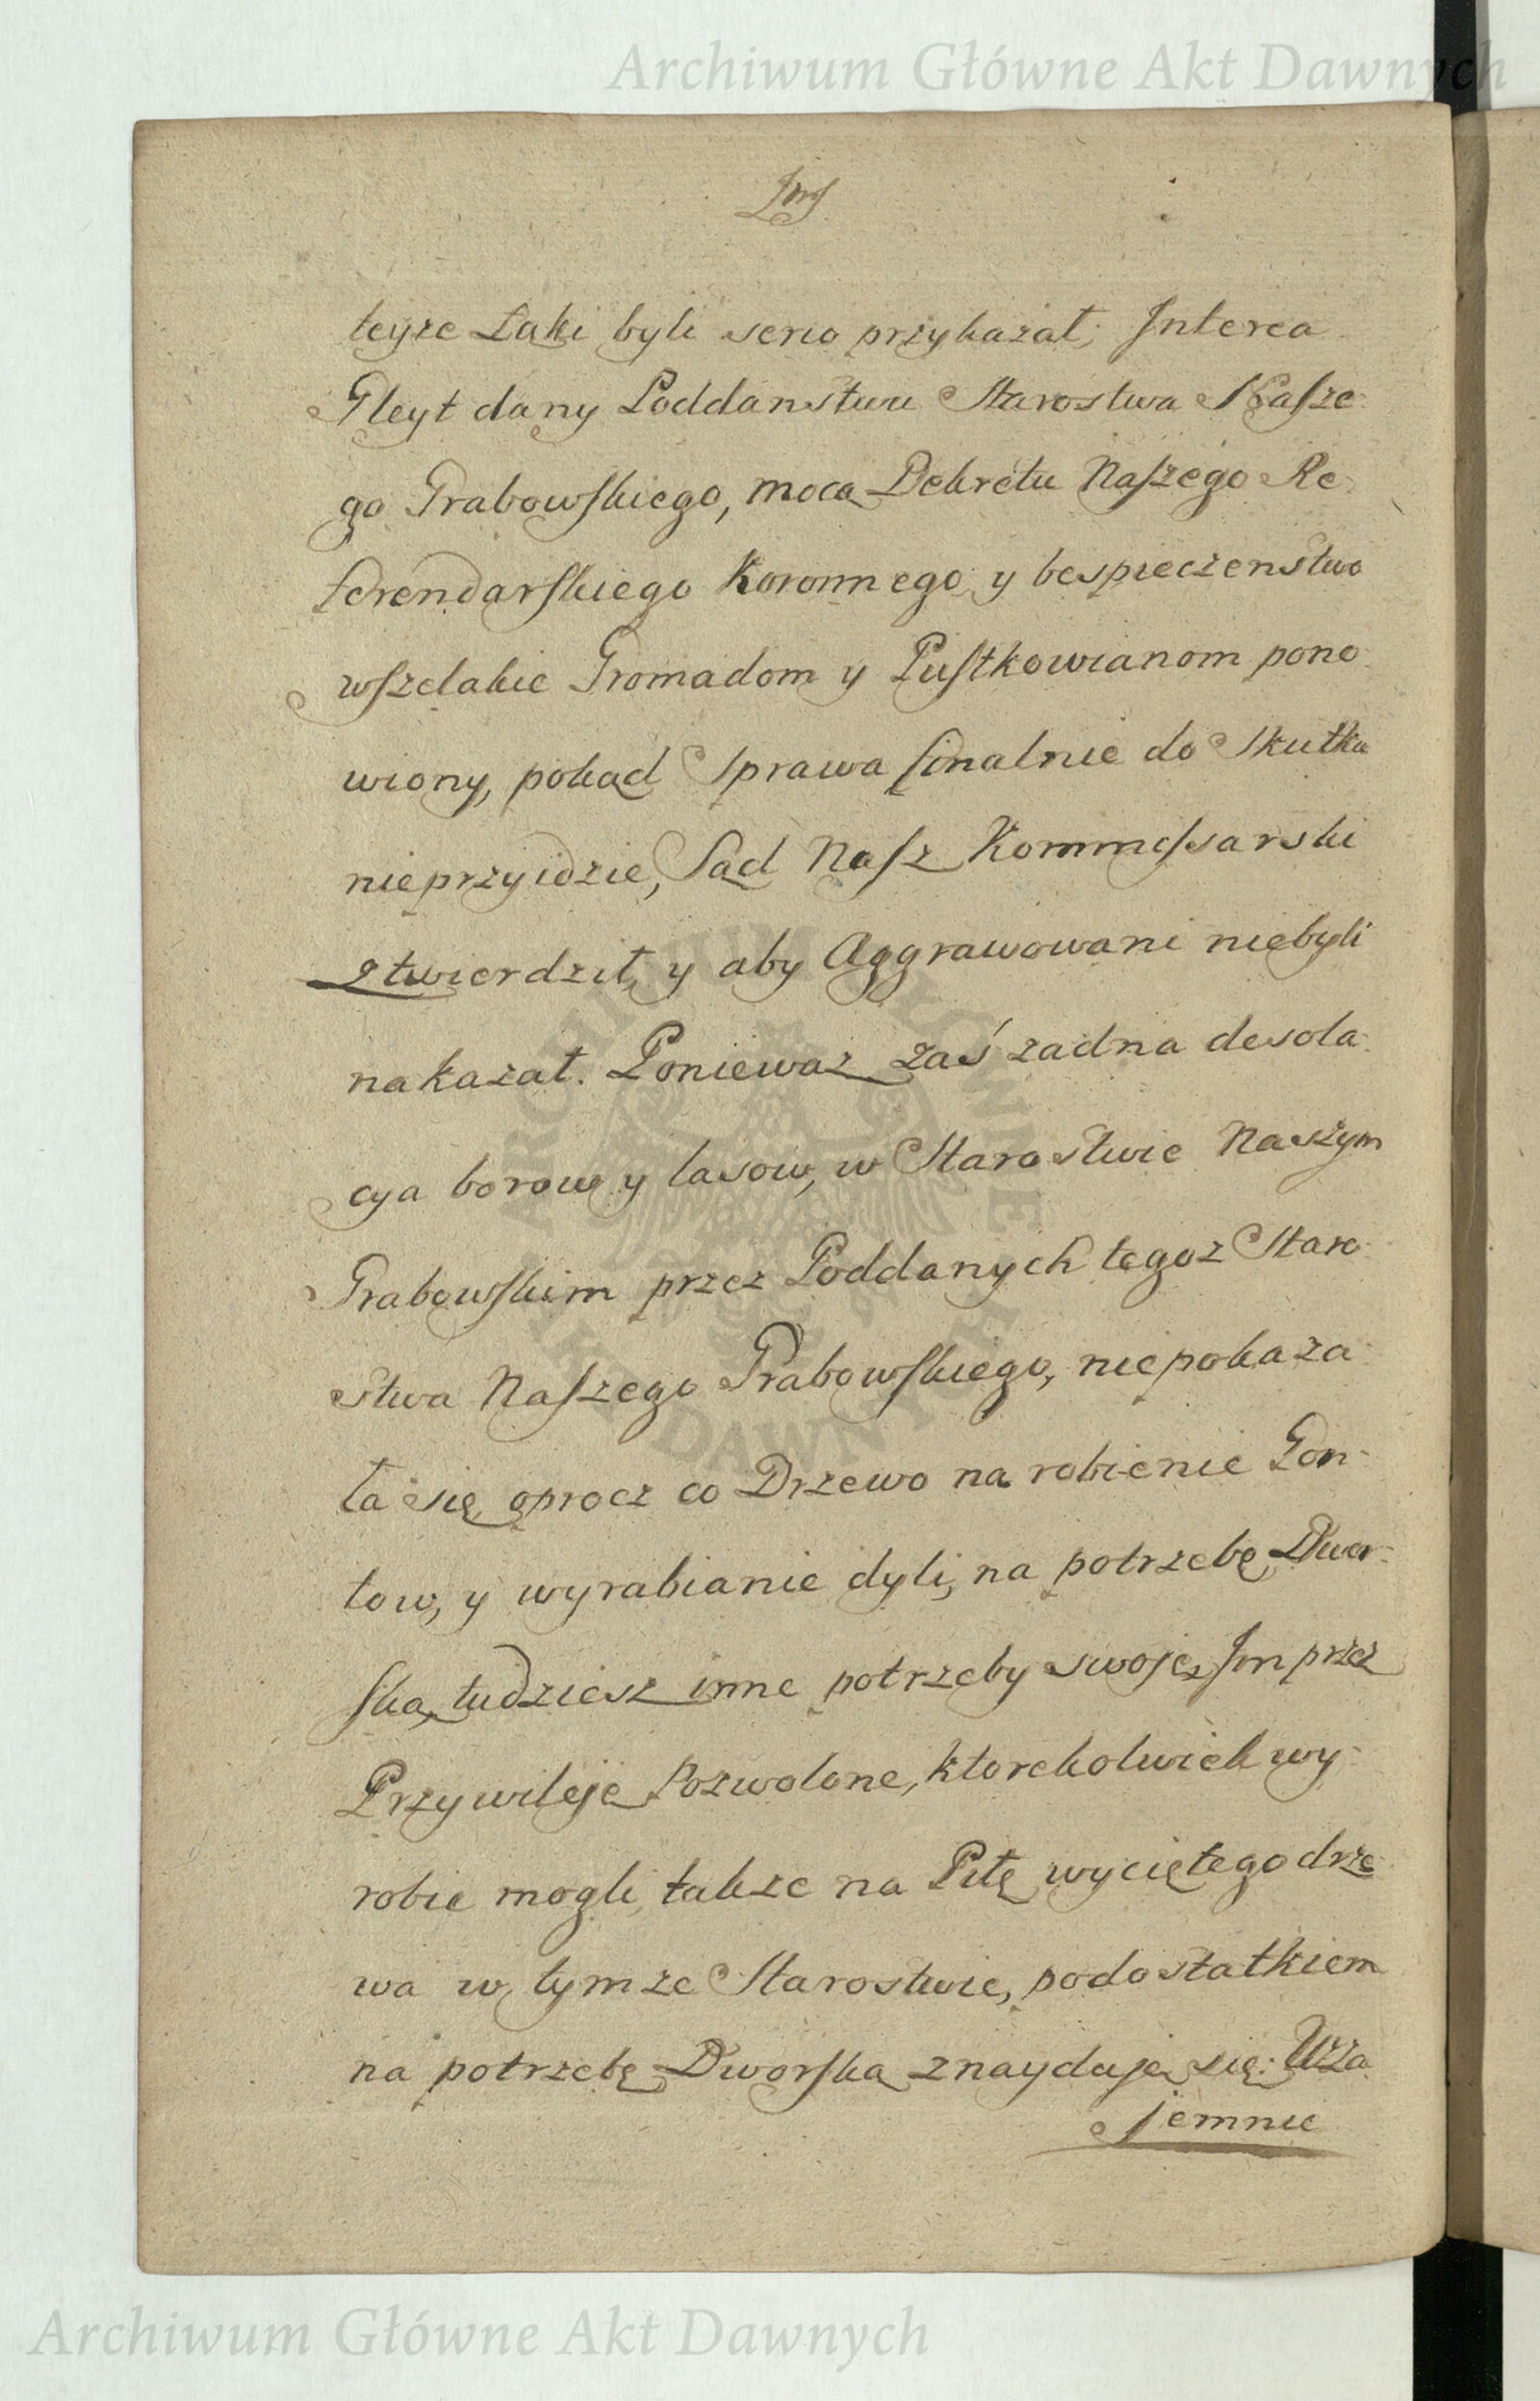 Archiwum Główne Akt Dawnych
teyze Łąki byli serio przykazał; Interea
Gleyt dany Poddanstwu Starostwa Nasze-
go Grabowskiego, mocą Dekretu Naszego Re-
ferendarskiego Koronnego y bespieczenstwo
wszelakie Gromadom y Pustkowianom pono-
wiony, pokąd Sprawa finalnie do Skutku
nieprzyidzie, Sąd Nasz Kommissarski
ztwierdził, y aby Aggrawowani niebyli
nakazał. Poniewaz zaś zadna desola-
cya borow y lasow, w Starostwie Naszym
Grabowskim przez Poddanych tegoz Staro-
stwa Naszego Grabowskiego, niepokaza-
ła się oprocz co Drzewo na robienie Gon-
tow, y wyrabianie dyli, na potrzebę Dwor-
ską, tudziesz inne potrzeby swoje, Im przez
Przywileje Pozwolone, ktorekolwiek wy-
robic mogli, także na Piłę wyciętego drze-
wa w tymze Starostwie, podostatkiem
na potrzebę Dworską znayduje się: Wza-
jemnie
Archiwum Główne Akt Dawnych
ARCHIWUM GŁÓWNE AKT DAWNYCH